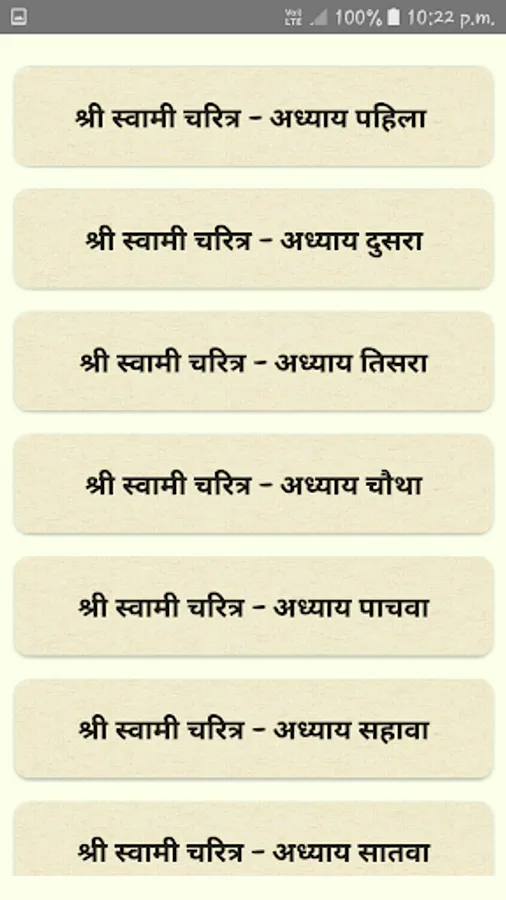 VoI) LTE 100% 10:22 p.m.
श्री स्वामी चरित्र - अध्याय पहिला
श्री स्वामी चरित्र - अध्याय दुसरा
श्री स्वामी चरित्र - अध्याय तिसरा
श्री स्वामी चरित्र - अध्याय चौथा
श्री स्वामी चरित्र - अध्याय पाचवा
श्री स्वामी चरित्र - अध्याय सहावा
श्री स्वामी चरित्र - अध्याय सातवा